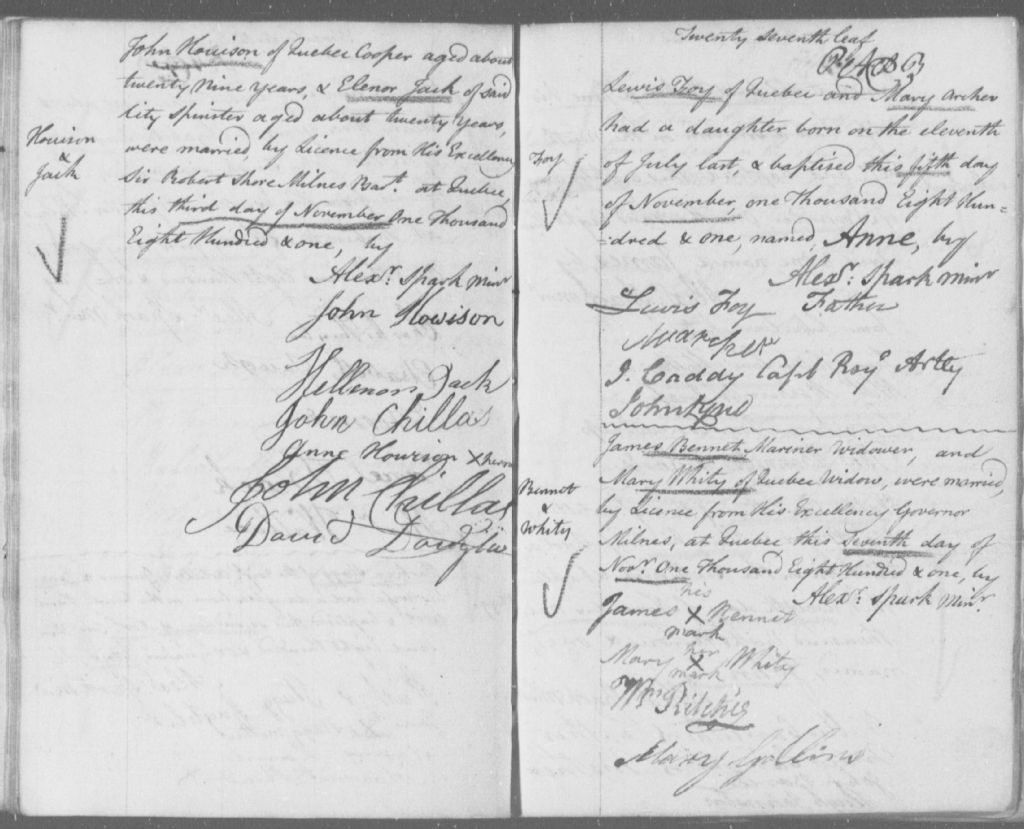 Howison
&
Jack
John Howison of Quebec Cooper aged about
twenty nine years, & Elenor Jack of said
City Spinster aged about twenty years,
were married, by Licence from His Excellency
Sir Robert Shore Milnes Bart. at Quebec,
this third day of November One Thousand
Eight Hundred & one, by
Alexr. Spark minr
John Howison
Hellenor Jack
John Chillas
Anne Howison X
John Chillas
David
Twenty seventh leaf
Foy
Lewis Foy of Quebec and Mary Archer
had a daughter born on the eleventh
of July last, & baptised this fifth day
of November, one Thousand Eight Hun=
=dred & one, named, Anne, by
Alexr. Spark minr
Lewis Foy Father
M archer
J. Caddy Capt Roy Artly
John
Bennet
&
Whity
James Bennet Mariner Widower, and
Mary Whity of Quebec Widow, were married,
by Licence from His Excellency Governor
Milnes, at Quebec this Seventh day of
Novr. One Thousand Eight Hundred & one, by
Alexr. Spark Minr.
his
James X Bennet
mark
her
Mary X Whity
mark
Wm Ritchie
Mary Gillins